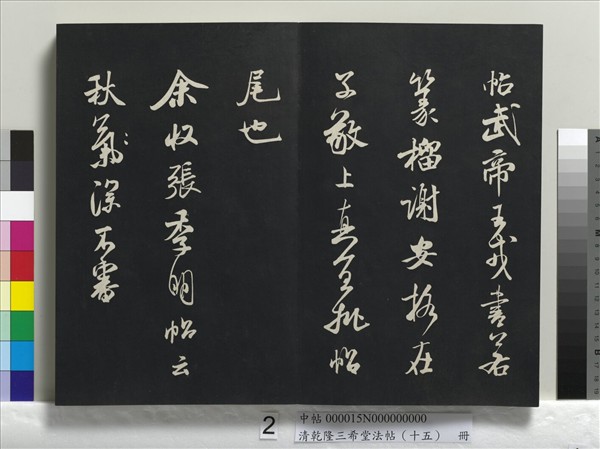 帖武帝王戎書若
篆籀謝安格在
子敬上真宜批帖
尾也
余收張季明帖云
秋氣深不審
2
中帖 000015N000000000
清乾隆三希堂法帖(十五) 冊